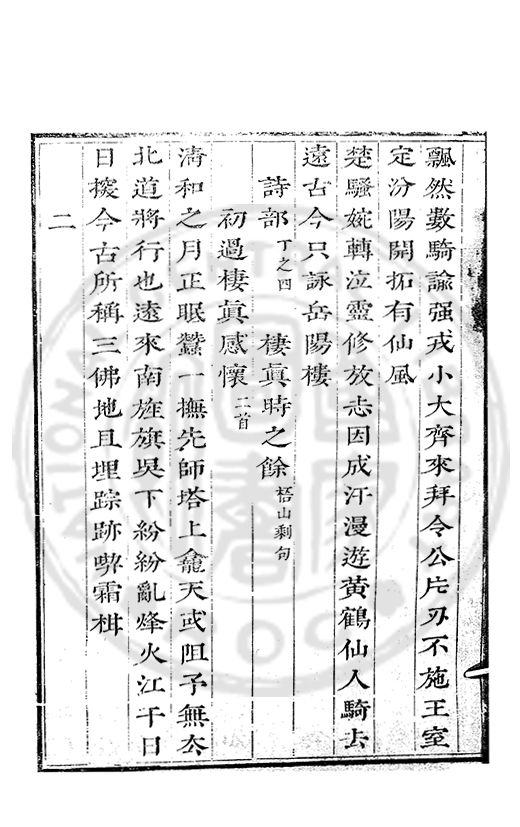 飄然數騎諭强戎小大齊來拜令公片刃不施王室
定汾陽開拓有仙風
楚騷婉轉泣靈修放志因成汗漫遊黃鶴仙人騎去
遠古今只詠岳陽樓
詩部 丁之四 棲眞時之餘 梧山剩句
初過棲眞感懷 二首
淸和之月正眠蠶一撫先師塔上龕天或阻予無夲
北道將行也遠來南旌旗吳下紛紛亂烽火江干日
日探今古所稱三佛地且埋踪跡嚼霜柑
二